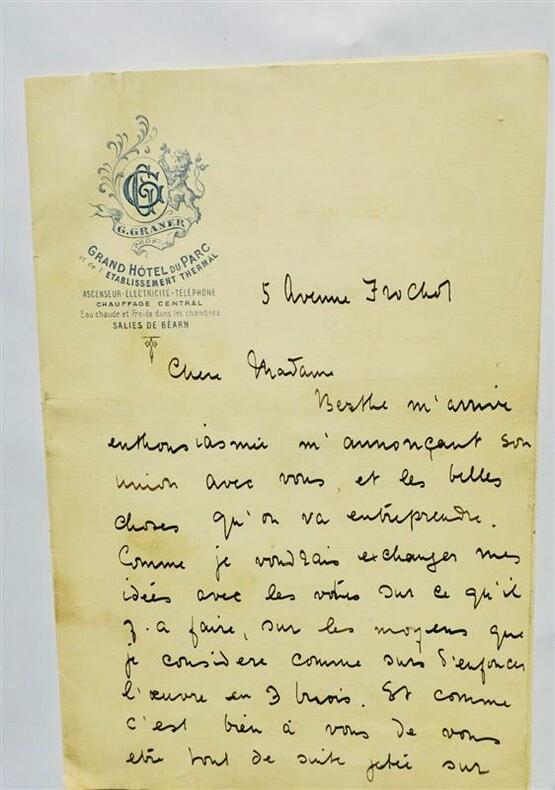 GG
G. GRANER
PROP.
GRAND HÔTEL DU PARC
et de l'ETABLISSEMENT THERMAL
ASCENSEUR-ÉLECTRICITÉ-TÉLÉPHONE
CHAUFFAGE CENTRAL
Eau chaude et Froide dans les chambres
SALIES DE BÉARN
5 Avenue Frochot
Chere Madame
Berthe m'arrive
enthousiasmée m'annonçant son
union avec vous, et les belles
choses qu'on va entreprendre.
Comme je voudrais exchanger mes
idées avec les votres sur ce qu'il
y a faire, sur les moyens que
je considere comme surs d'enfoncer
l'œuvre en 3 mois. Et comme
c'est bien à vous de vous
etre tout de suite jetée sur